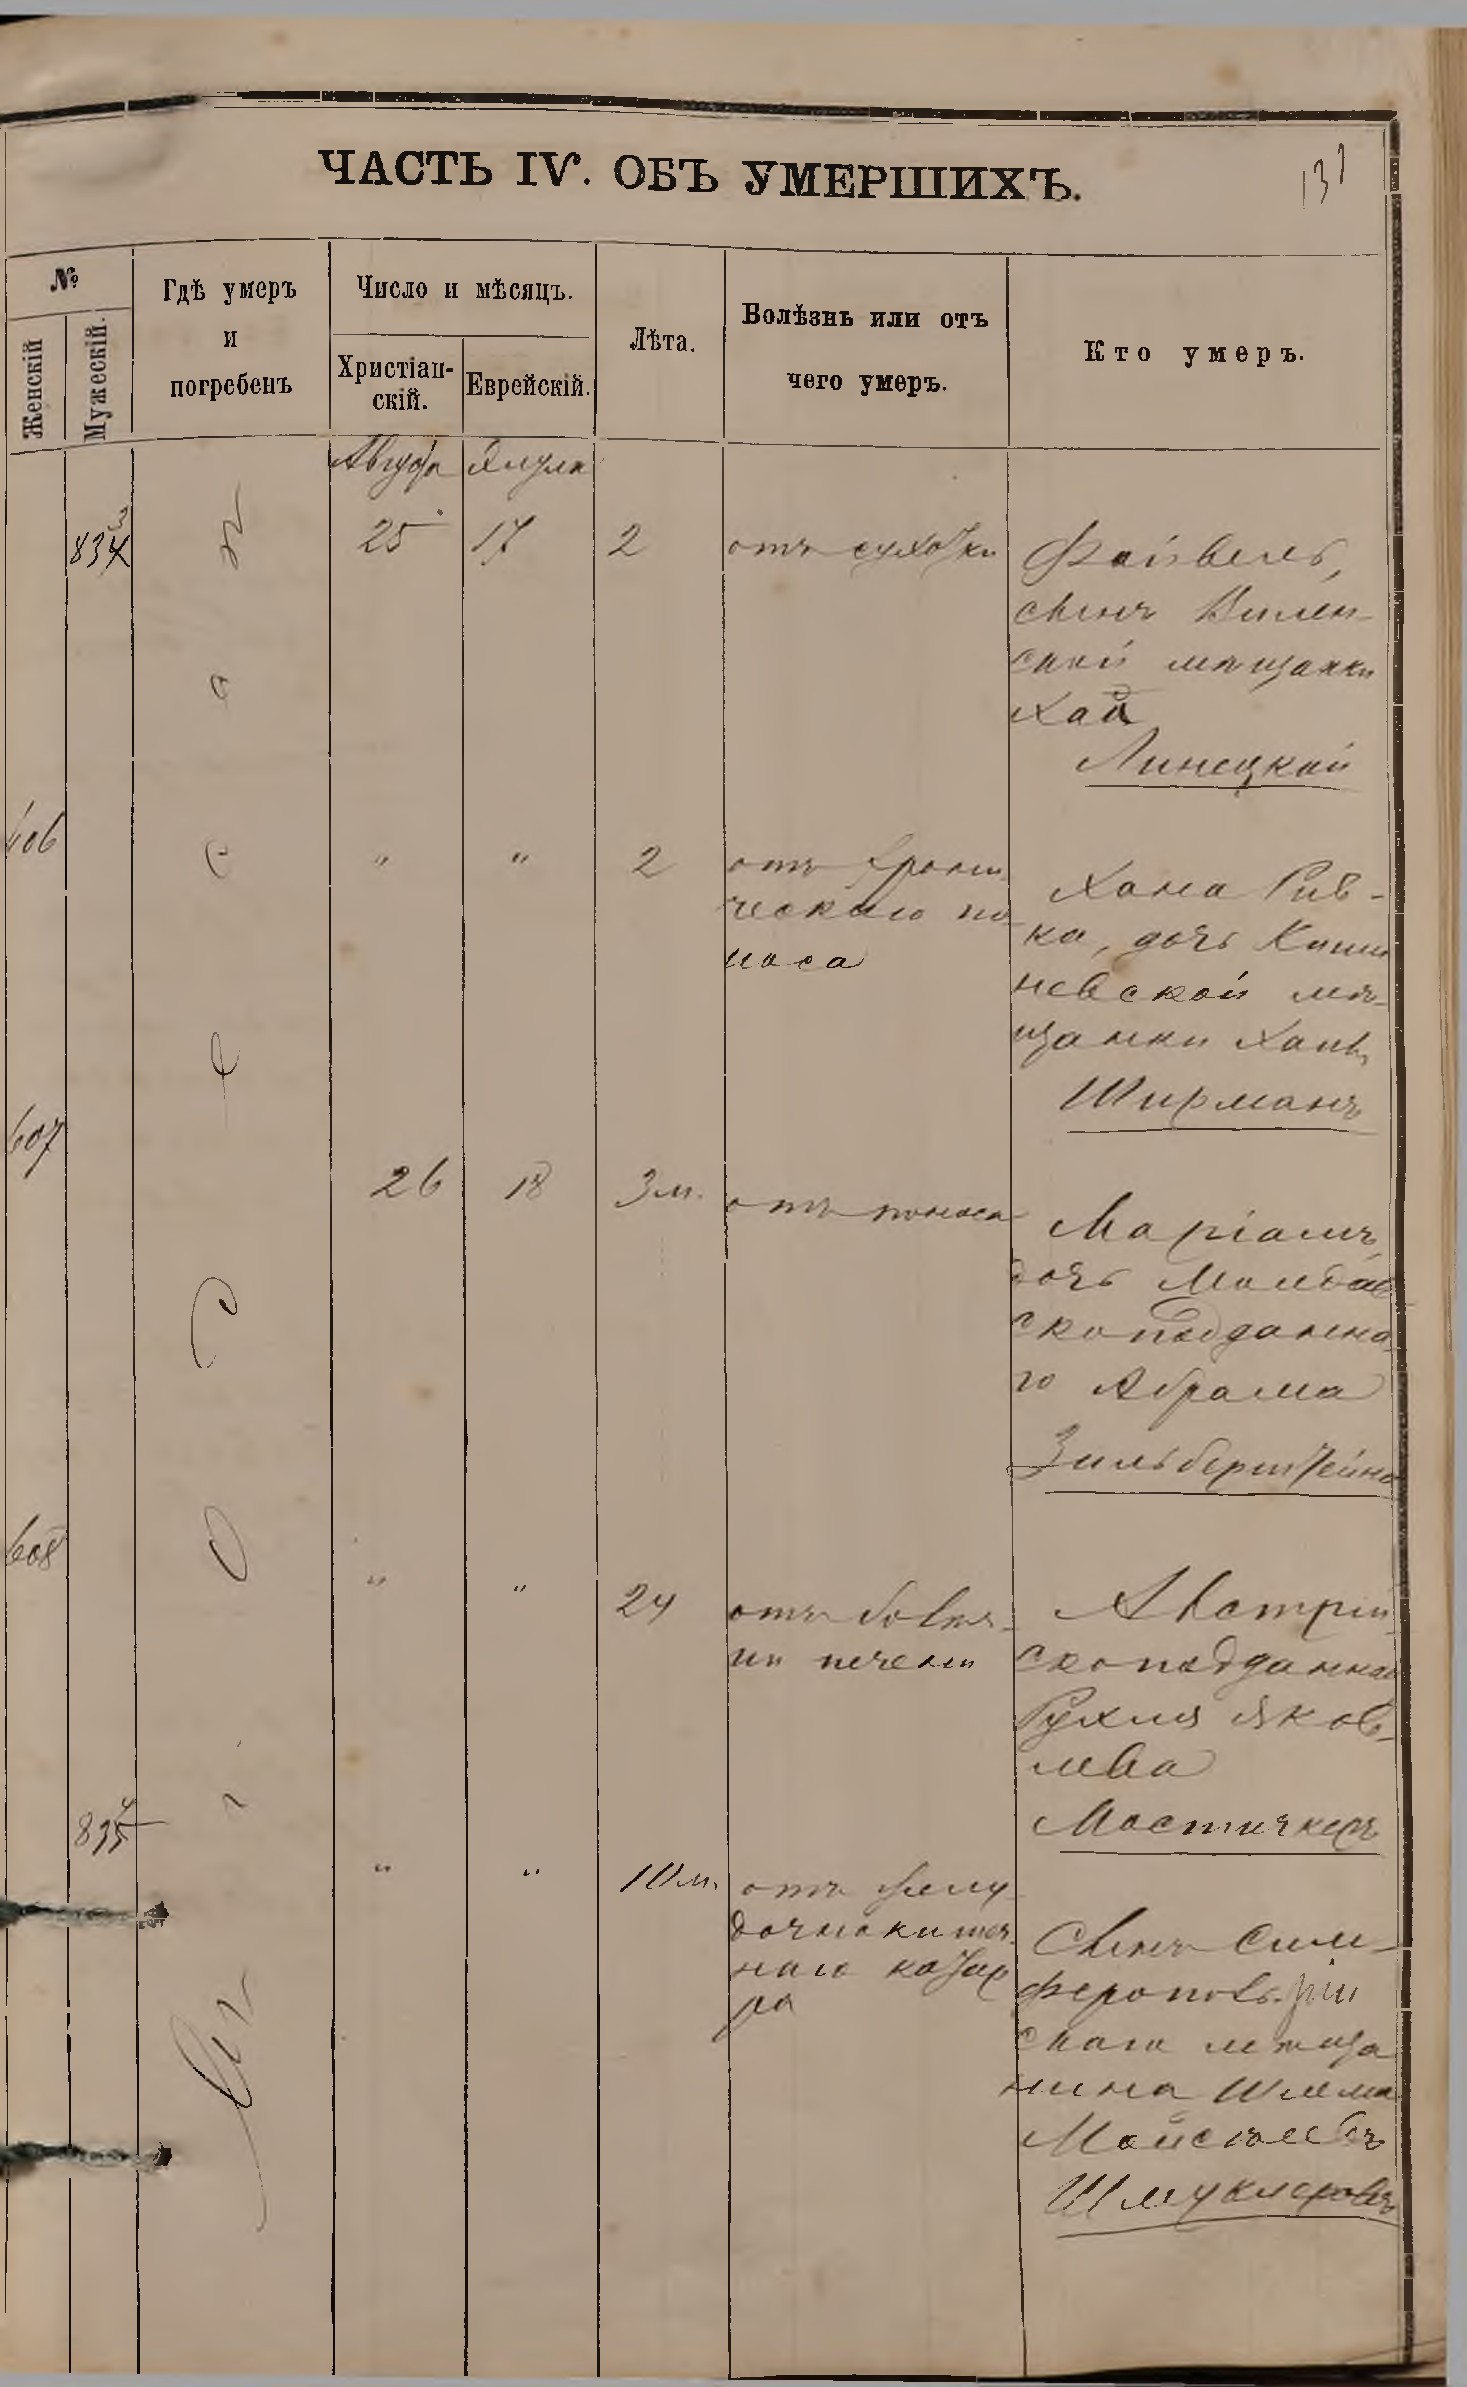 ЧАСТЬ IV. ОБЪ УМЕРШИХЪ.
137
№
Женскій
Мужескій.
Гдѣ умеръ
и
погребенъ
Число и мѣсяцъ.
Христіан-
скій.
Еврейскій.
Лѣта.
Болѣзнь или отъ
чего умеръ.
Кто умеръ.
Августа Элула
834 3 25 17 2 отъ сухотки
Файвель,
сынъ Вилен-
ской мѣщанки
Хаи
Линецкой
606 " " 2 отъ хрони-
ческаго по-
носа
Хана Рив-
ка, дочь Киши
невской мѣ-
щанки Ханы
Ширманъ
607 26 18 3 м. отъ поноса
Маріамъ,
дочь Молдав
скоподданна-
го Абрама
Зильберштейна
608 " " 24 отъ болѣз-
ни печени
Австрій-
скоподданная
Рухля Яков-
лева
Мостичкеръ
835 4 " " 10 м. отъ желу-
дочнокишеч-
наго катар
ра
Сынъ Сим-
ферополь-
скаго мѣща
нина Шлема
Мойсѣевъ
Шмуклеровъ